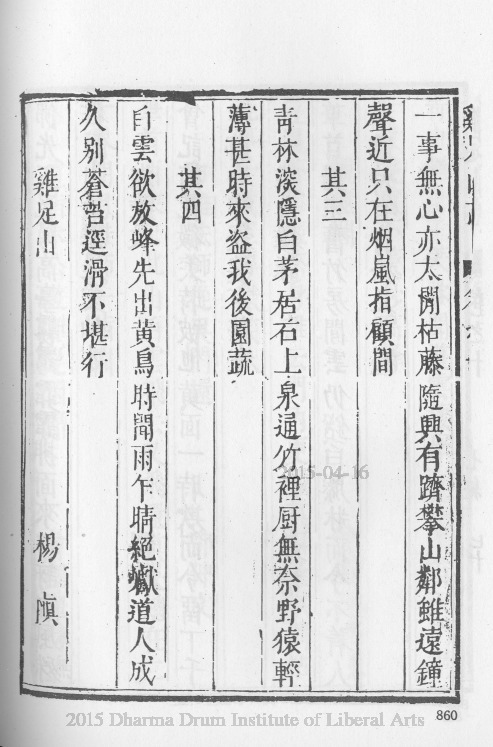 一事無心亦太閒枯藤隨興有躋攀山鄰雖遠鐘
聲近只在烟嵐指顧間
其三
青林淡隱白茅居石上泉通竹裡厨無奈野猿輕
薄甚時來盗我後園蔬
其四
白雲欲放峰先出黄鳥時聞雨乍晴絕巘道人成
久别蒼苔逕滑不堪行
雞足山 楊慎
2015-04-16
860
2015 Dharma Drum Institute of Liberal Arts